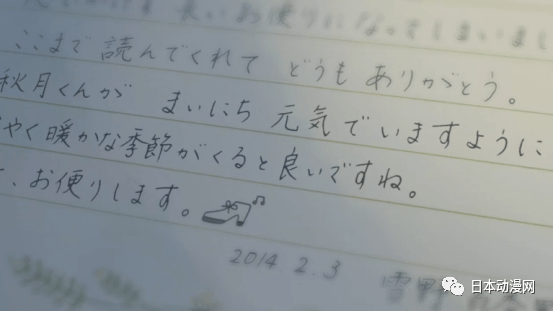 長いお便りになってしまいまし
ここまで読んでくれて どうもありがとう。
秋月くんが まいにち 元気でいますように
やく暖かな季節がくると良いですね。
、お便りします。
2014 2.3
雪野
日本动漫网